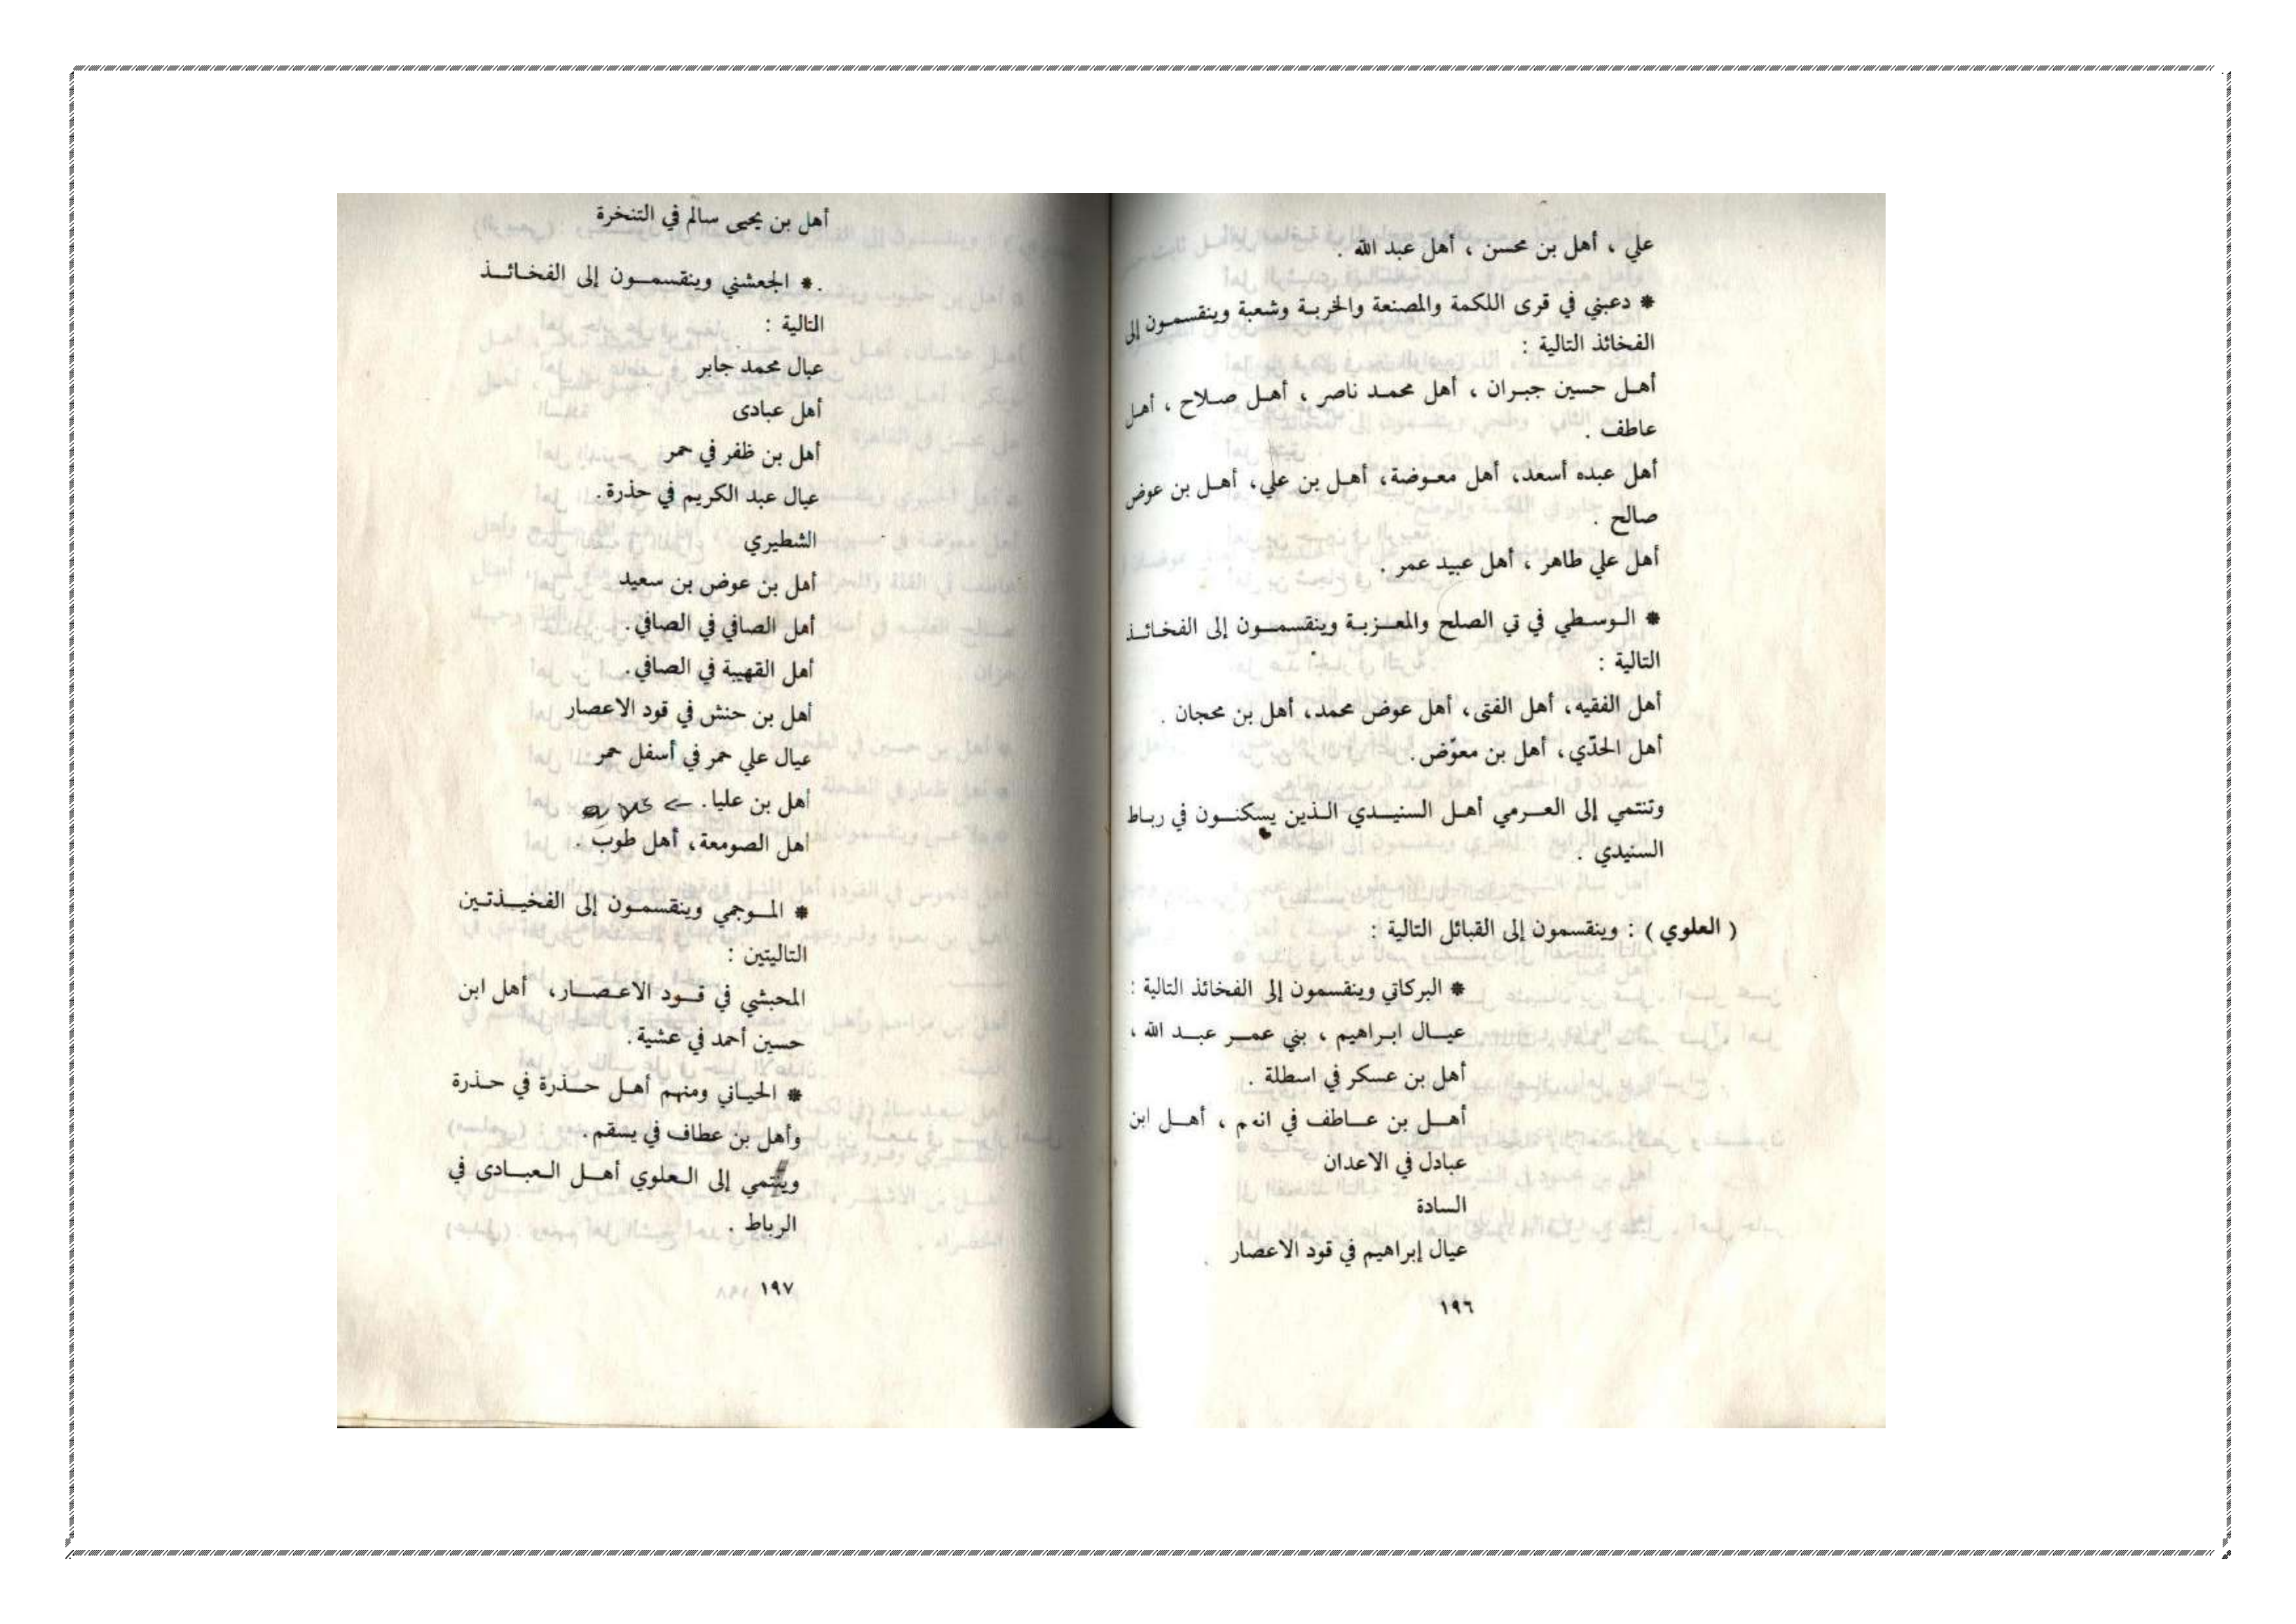 علي ، أهل بن محسن ، أهل عبد الله .
* دعبني في قرى اللكمة والمصنعة والخربة وشعبة وينقسمون إلى
الفخائذ التالية :
أهل حسين جبران ، أهل محمد ناصر ، أهل صلاح ، أهل
عاطف .
أهل عبده أسعد، أهل معوضة، أهل بن علي، أهل بن عوض
صالح .
أهل علي طاهر ، أهل عبيد عمر .
* الوسطي في تي الصلح والمعزبة وينقسمون إلى الفخائذ
التالية :
أهل الفقيه، أهل الفتى، أهل عوض محمد، أهل بن محجان .
أهل الحدّي، أهل بن معوّض.
وتنتمي إلى العرمي أهل السنيدي الذين يسكنون في رباط
السنيدي .
( العلوي ) : وينقسمون إلى القبائل التالية :
* البركاتي وينقسمون إلى الفخائذ التالية :
عيال ابراهيم ، بني عمر عبد الله ،
أهل بن عسكر في اسطلة .
أهل بن عاطف في انهم ، أهل ابن
عبادل في الاعدان
السادة
عيال إبراهيم في قود الاعصار
١٩٦
أهل بن يحيى سالم في التنخرة
* الجعشني وينقسمون إلى الفخائذ
التالية :
عبال محمد جابر
أهل عبادى
أهل بن ظفر في حمر
عيال عبد الكريم في حذرة.
الشطيري
أهل بن عوض بن سعيد
أهل الصافي في الصافي.
أهل القهيبة في الصافي.
اهل بن حنش في قود الاعصار
عيال علي حمر في أسفل حمر
اهل بن عليا.
اهل الصومعة، أهل طوب .
* الموجمي وينقسمون إلى الفخيذتين
التاليتين :
المحبشي في قود الاعصار، أهل ابن
حسين أحمد في عشية.
* الحياني ومنهم أهل حذرة في حذرة
وأهل بن عطاف في يسقم.
وينتمي إلى العلوي أهل العبادى في
الرباط .
١٩٧